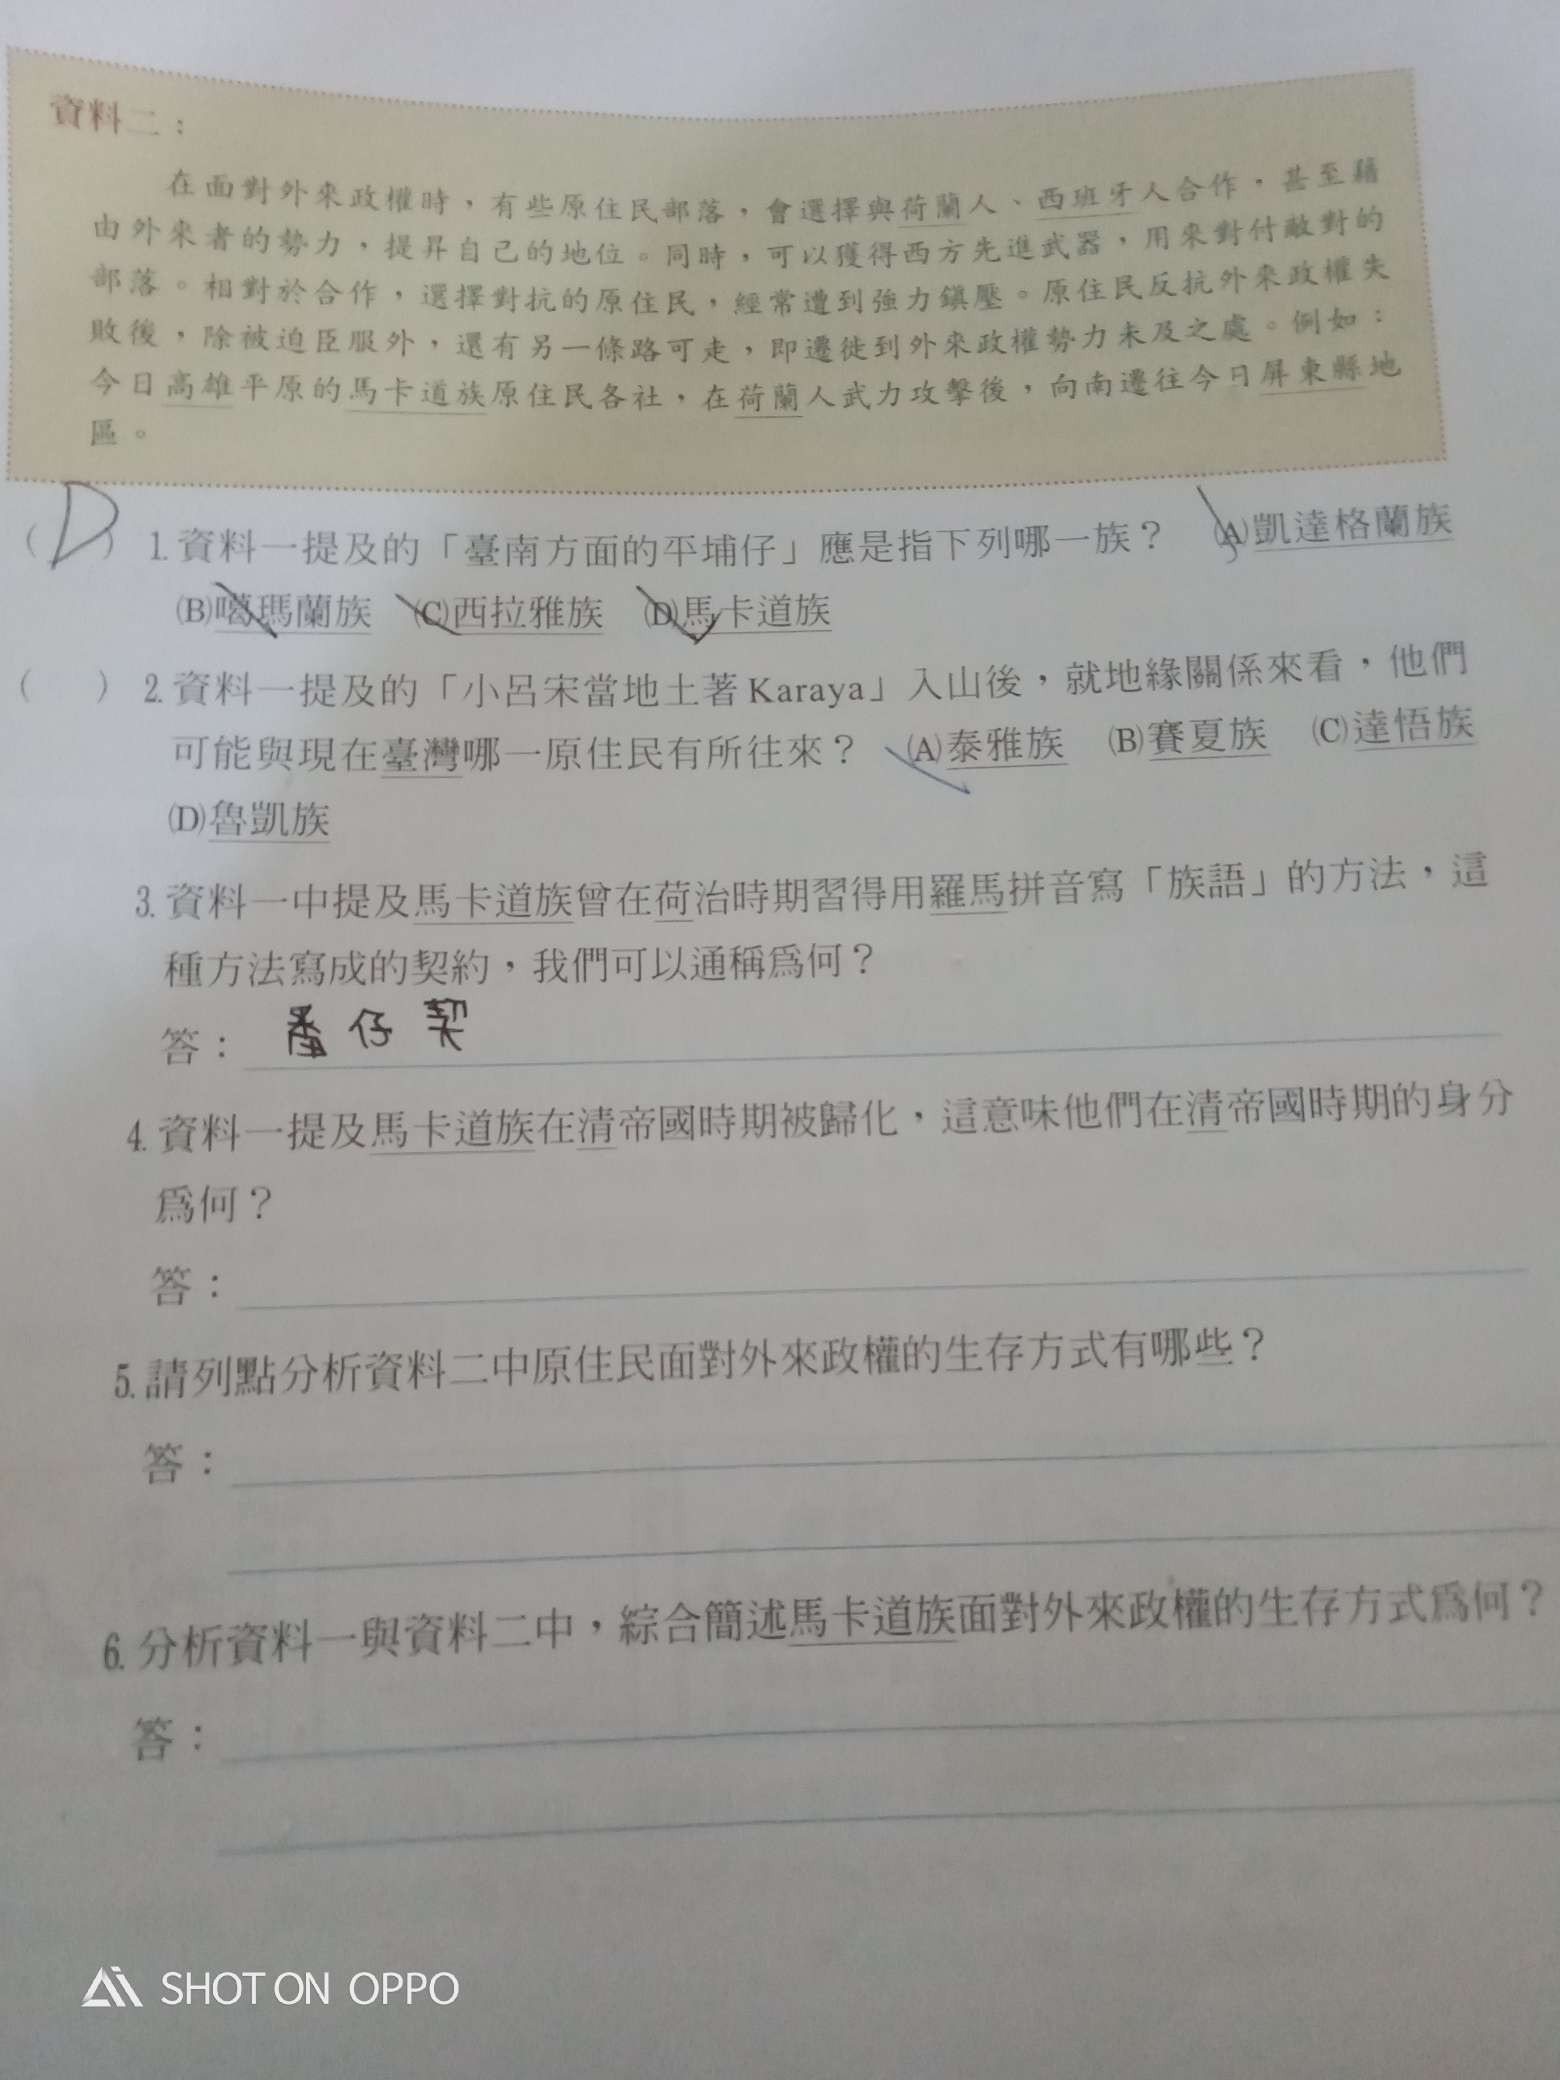 資料二：
在面對外來政權時，有些原住民部落，會選擇與荷蘭人、西班牙人合作，甚至藉
由外來者的勢力，提昇自己的地位。同時，可以獲得西方先進武器，用來對付敵對的
部落。相對於合作，選擇對抗的原住民，經常遭到強力鎮壓。原住民反抗外來政權失
敗後，除被迫臣服外，還有另一條路可走，即遷徙到外來政權勢力未及之處。例如：
今日高雄平原的馬卡道族原住民各社，在荷蘭人武力攻擊後，向南遷往今日屏東縣地
區。
（D）1.資料一提及的「臺南方面的平埔仔」應是指下列哪一族？ (A)凱達格蘭族
(B)噶瑪蘭族 (C)西拉雅族 (D)馬卡道族
（ ）2.資料一提及的「小呂宋當地土著Karaya」入山後，就地緣關係來看，他們
可能與現在臺灣哪一原住民有所往來？ (A)泰雅族 (B)賽夏族 (C)達悟族
(D)魯凱族
3.資料一中提及馬卡道族曾在荷治時期習得用羅馬拼音寫「族語」的方法，這
種方法寫成的契約，我們可以通稱為何？
答：番仔契
4.資料一提及馬卡道族在清帝國時期被歸化，這意味他們在清帝國時期的身分
為何？
答：
5.請列點分析資料二中原住民面對外來政權的生存方式有哪些？
答：
6.分析資料一與資料二中，綜合簡述馬卡道族面對外來政權的生存方式為何？
答：
SHOT ON OPPO